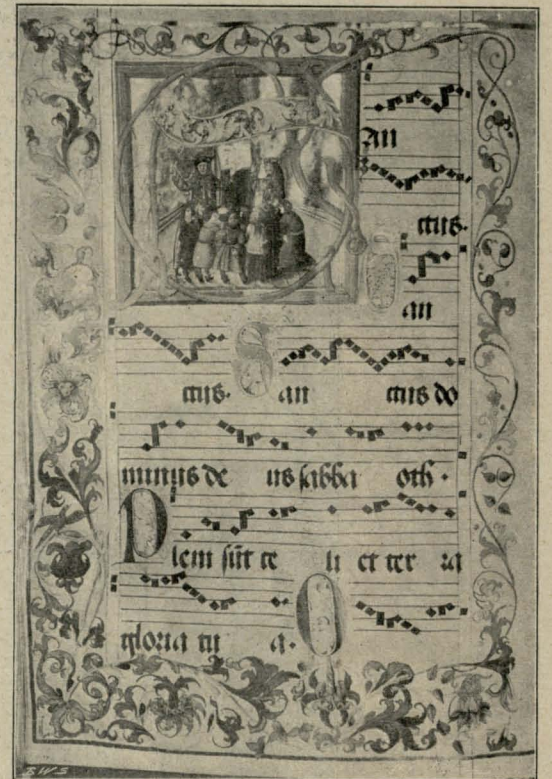 San
ctus.
San
ctus. San ctus do
minus de us sabba oth.
Pleni sūt ce li et ter ra
gloria tu a. O
SWS